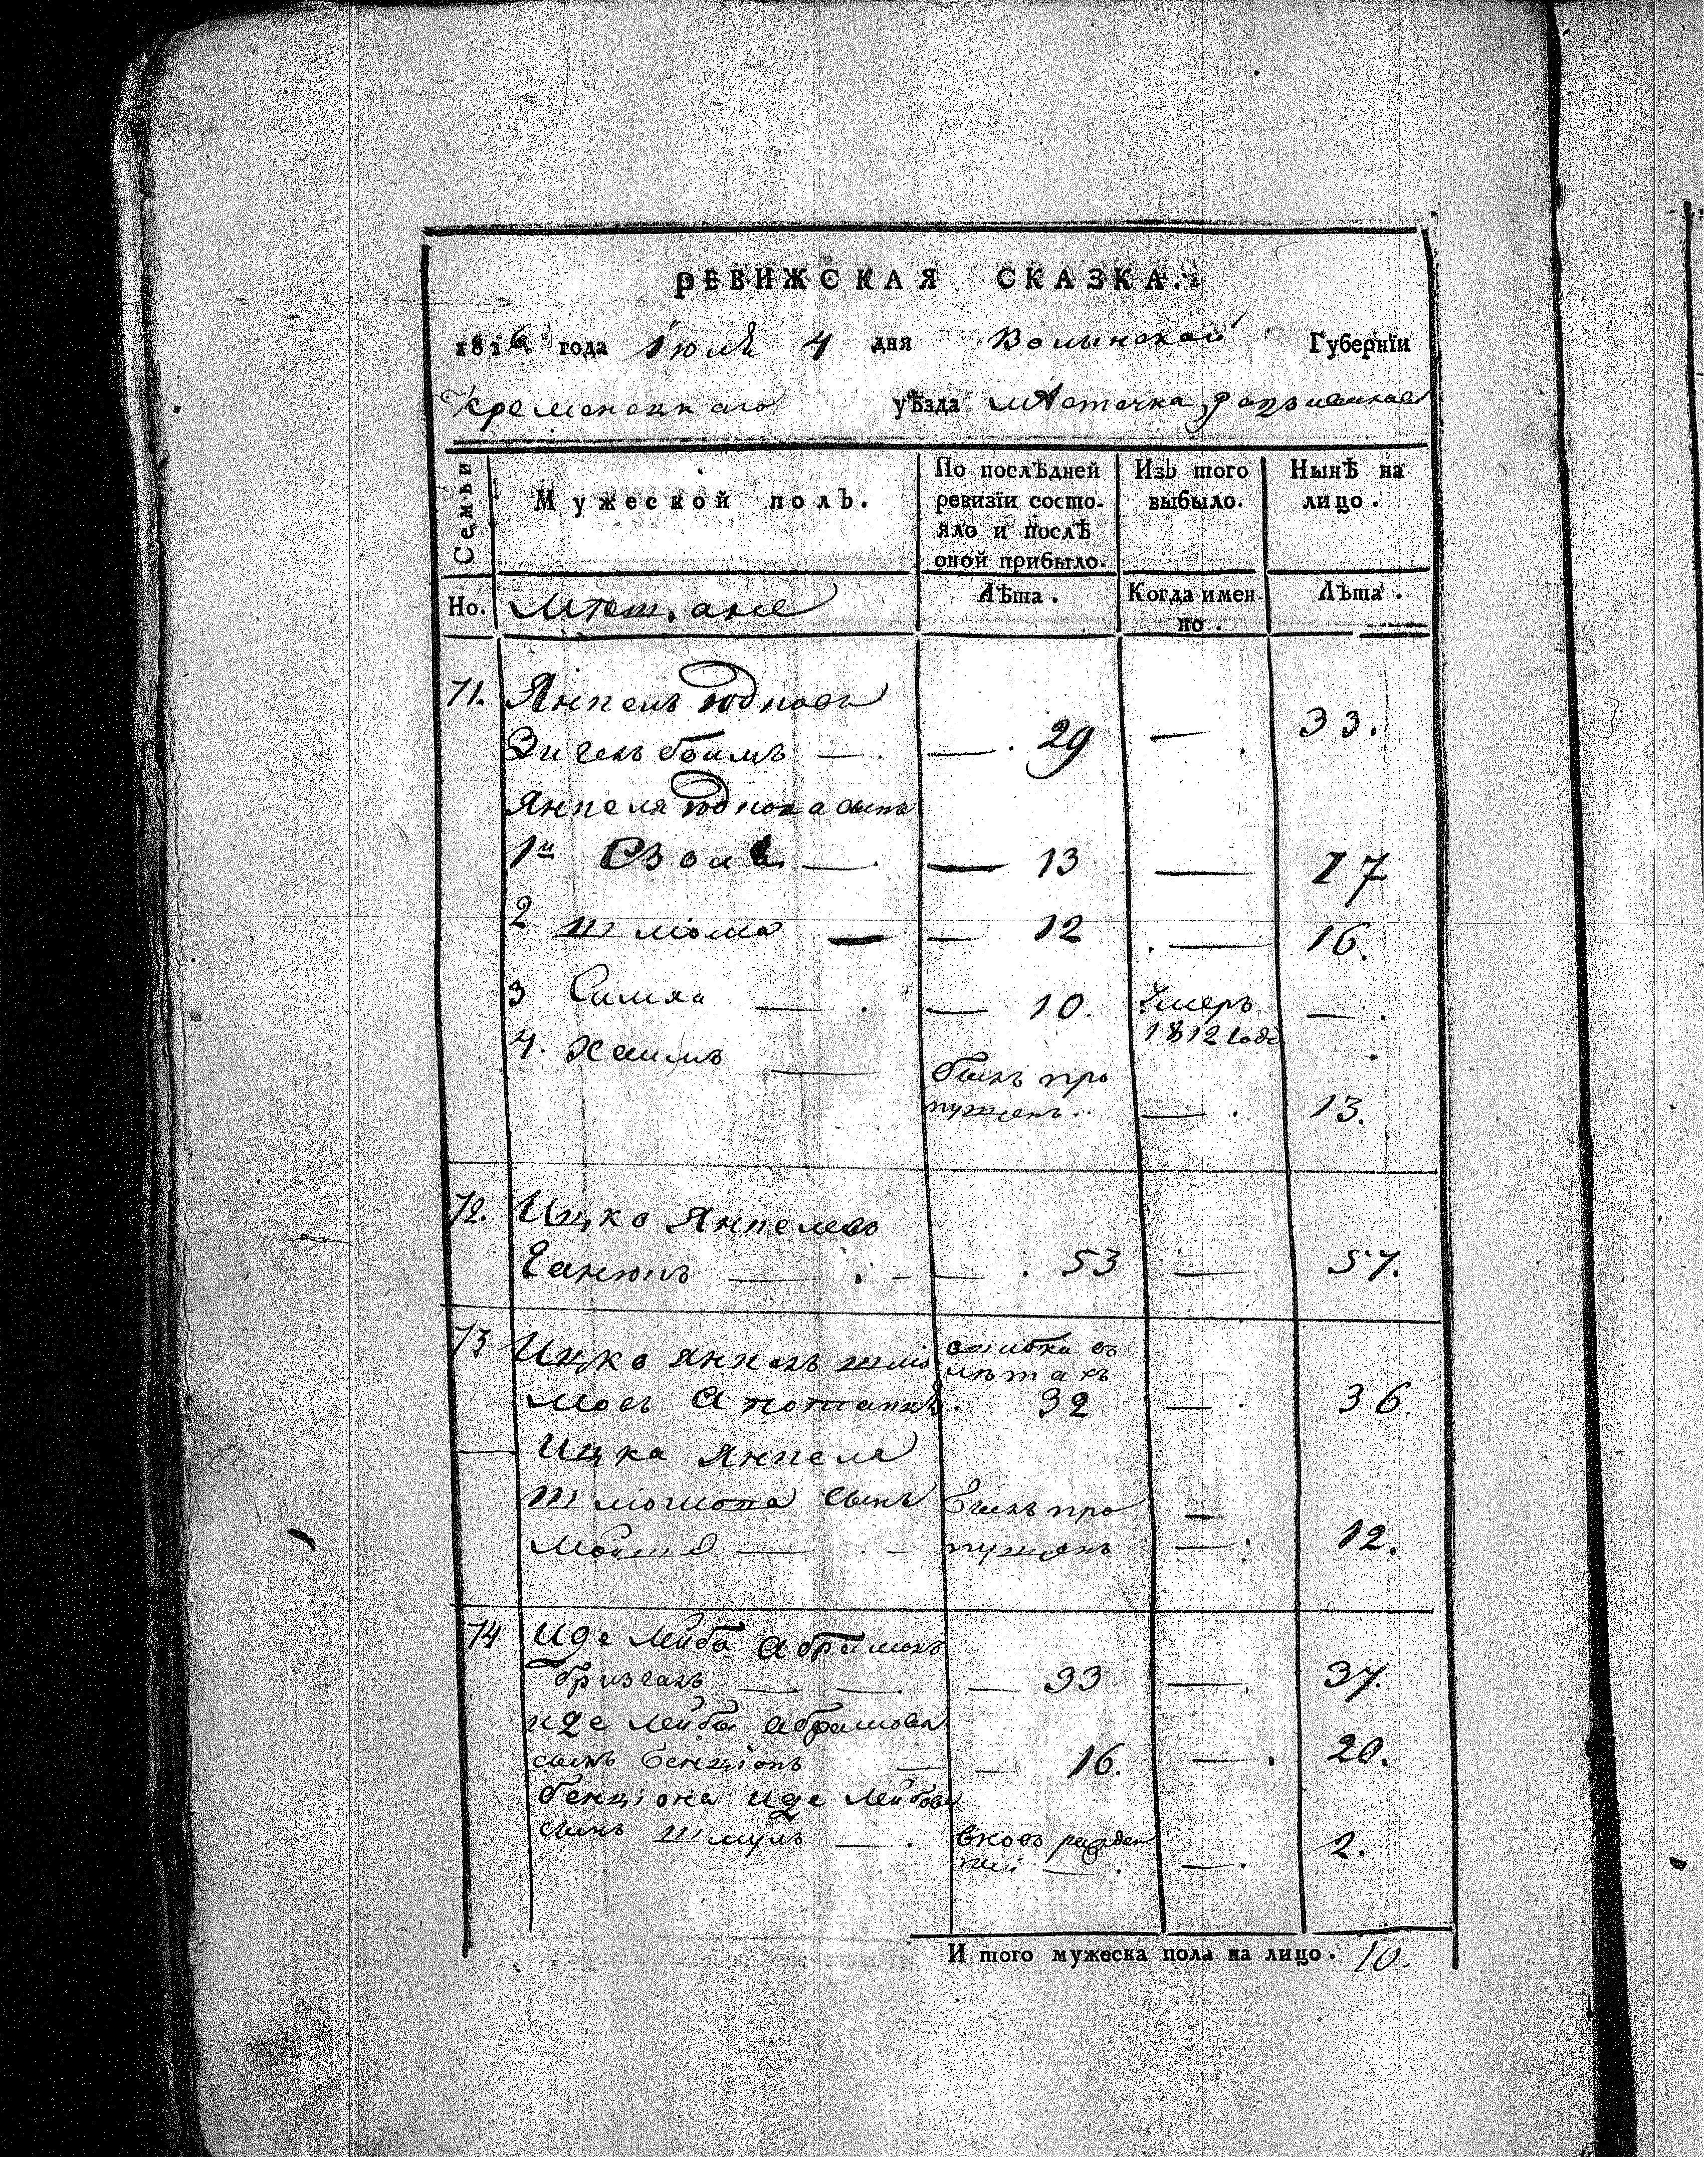 РЕВИЖСКАЯ СКАЗКА.
1816 года Июля 4 дня Волынской Губернїи
Кременецкаго уѣзда мѣстечка
Семьи
Мужеской полъ.
По послѣдней ревизїи состо-
яло и послѣ
оной прибыло.
Изъ того
выбыло.
Нынѣ на
лицо.
Но. Мѣщане Лѣта. Когда имен-
но. Лѣта.
71. Янкель
— 29 — 33.
Янкеля сынъ
1й — 13 — 17
2 Шліома — 12 — 16.
3 Симха — 10. Умеръ
1812 года —
4. Хаимъ — былъ про
пущенъ. — 13.
72. Ицко Янкелевъ
— 53 — 57.
73 Ицко Янкель Шліо
ошибка въ
лѣтахъ
мовъ 32 — 36.
Ицка Янкеля
Шліомова сынъ былъ про —
Мошко — пущенъ — 12.
74 Иде Лейба Абрамовъ
— 33 — 37.
Иде Лейбы Абрамова
сынъ Бенціонъ — 16. — 20.
Бенціона Иде Лейбова
сынъ Шмуль — вновь рожден
ный — — 2.
И того мужеска пола на лицо. 10.